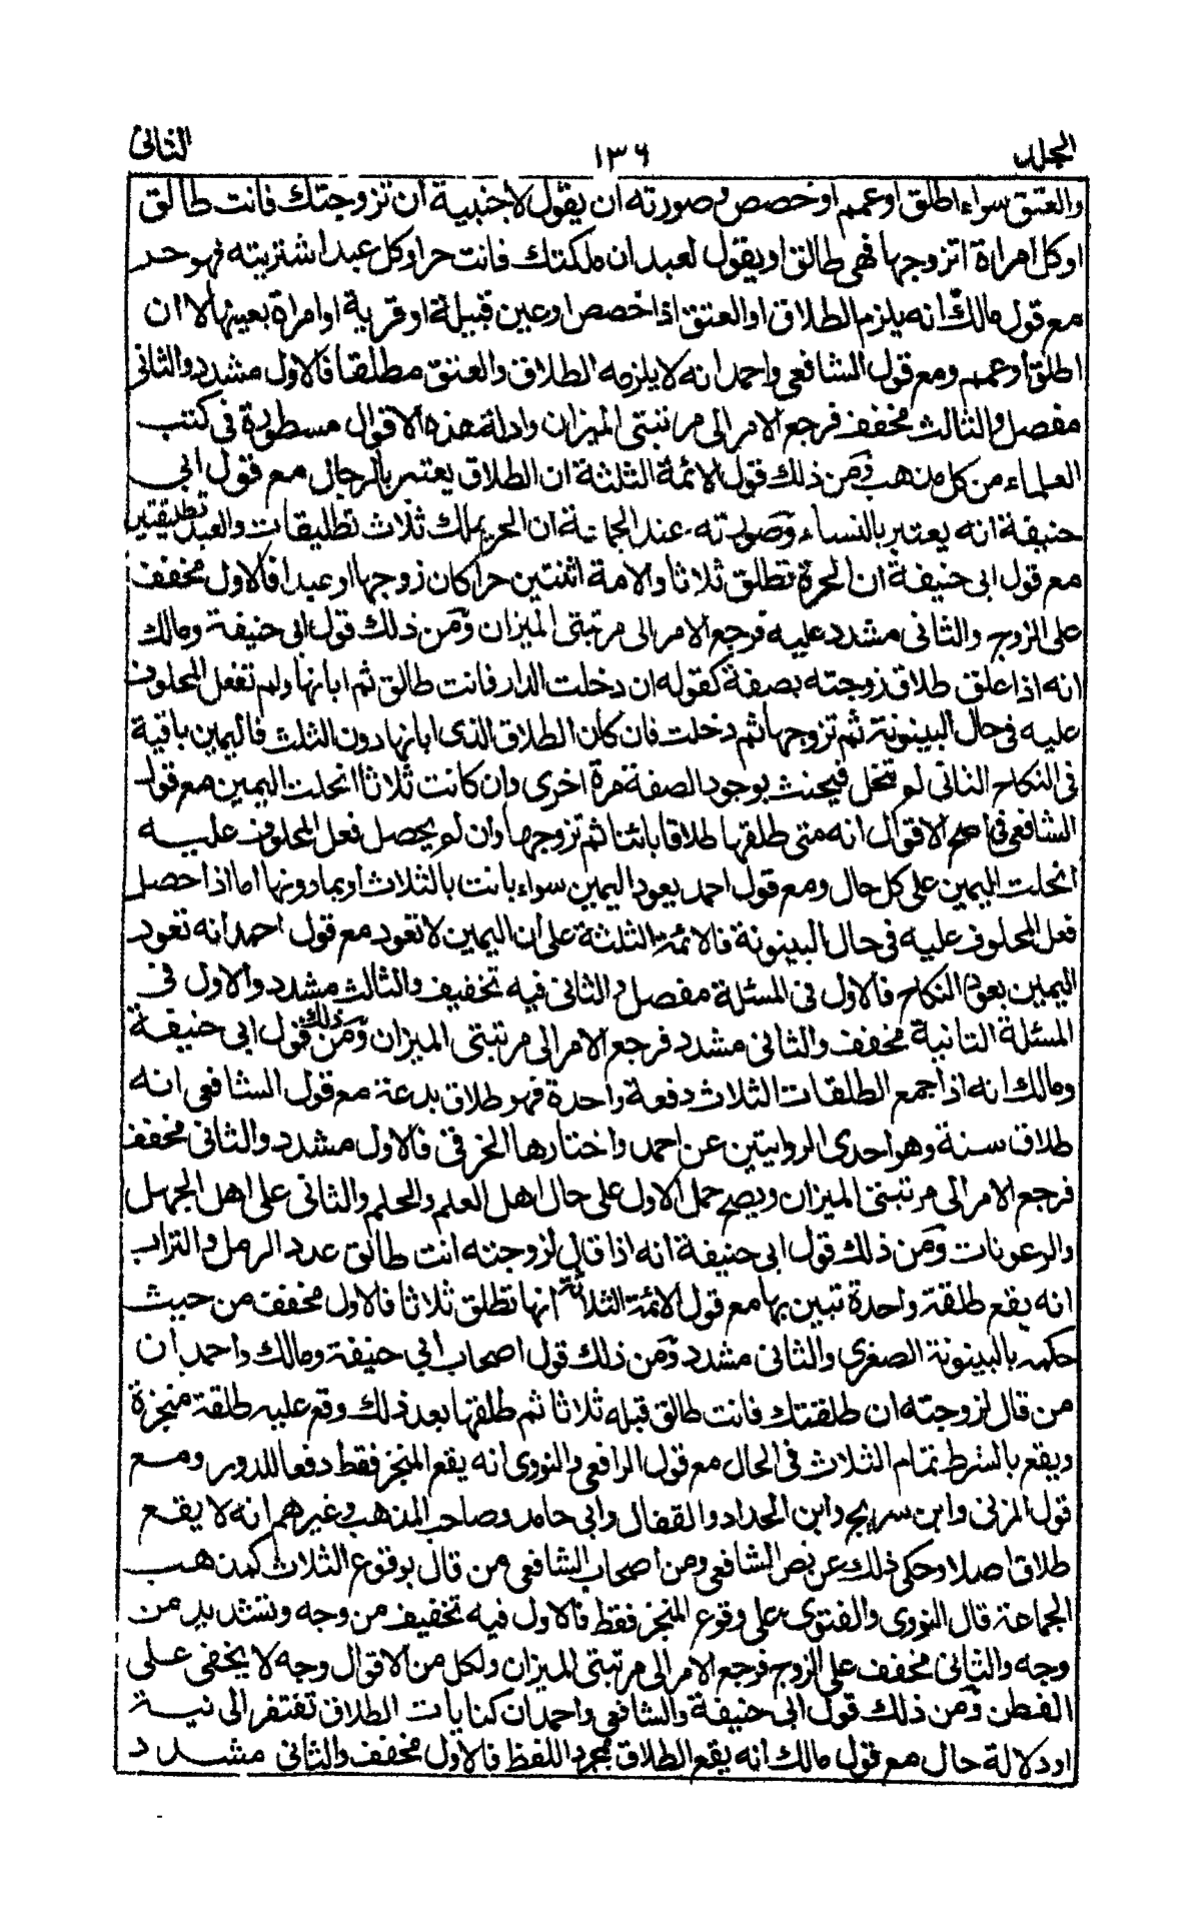 الجلد ١٣٦ الثانى
والعتق سواء اطلق او عمم او خصص وصورته ان يقول لاجنبية ان تزوجتك فانت طالق
او كل امراة اتزوجها فهى طالق او يقول لعبد ان ملكتك فانت حر او كل عبد اشتريته فهو حر
مع قول مالك انه يلزم الطلاق او العتق اذا خصص او عين قبيلة او قرية او امراة بعينها لا ان
اطلق او عمم ومع قول الشافعى واحمد انه لا يلزمه الطلاق والعتق مطلقا فالاول مشدد والثانى
مفصل والثالث مخفف فرجع الامر الى مرتبتى الميزان وادلة هذه الاقوال مسطورة فى كتب
العلماء من كل مذهب ومن ذلك قول الائمة الثلثة ان الطلاق يعتبر بالرجال مع قول ابى
حنيفة انه يعتبر بالنساء وصورته عند الجماعة ان الحر يملك ثلاث تطليقات والعبد تطليقتين
مع قول ابى حنيفة ان الحرة تطلق ثلاثا والامة اثنتين حرا كان زوجها او عبدا فالاول مخفف
على الزوج والثانى مشدد عليه فرجع الامر الى مرتبتى الميزان ومن ذلك قول ابى حنيفة ومالك
انه اذا علق طلاق زوجته بصفة كقوله ان دخلت الدار فانت طالق ثم ابانها ولم تفعل المحلوف
عليه فى حال البينونة ثم تزوجها ثم دخلت فان كان الطلاق الذى ابانها دون الثلث فاليمين باقية
فى النكاح الثانى لم تنحل فيحنث بوجود الصفة مرة اخرى وان كانت ثلاثا انحلت اليمين مع قول
الشافعى فى اصح الاقوال انه متى طلقها طلاقا بائنا ثم تزوجها وان لم يحصل فعل المحلوف عليه
انحلت اليمين على كل حال ومع قول احمد يعود اليمين سواء بانت بالثلاث او بما دونها اما اذا حصل
فعل المحلوف عليه فى حال البينونة فالائمة الثلثة على ان اليمين لا تعود مع قول احمد انه تعود
اليمين بعود النكاح فالاول فى المسئلة مفصل والثانى فيه تخفيف والثالث مشدد والاول فى
المسئلة الثانية مخفف والثانى مشدد فرجع الامر الى مرتبتى الميزان ومن ذلك قول ابى حنيفة
ومالك انه اذا جمع الطلقات الثلاث دفعة واحدة فهو طلاق بدعة مع قول الشافعى انه
طلاق سنة وهو احدى الروايتين عن احمد واختارها الخرقى فالاول مشدد والثانى مخفف
فرجع الامر الى مرتبتى الميزان ويصح حمل الاول على حال اهل العلم والحلم والثانى على اهل الجهل
والرعونات ومن ذلك قول ابى حنيفة انه اذا قال لزوجته انت طالق عدد الرمل والتراب
انه يقع طلقة واحدة تبين بها مع قول الائمة الثلاثة انها تطلق ثلاثا فالاول مخفف من حيث
حكمه بالبينونة الصغرى والثانى مشدد ومن ذلك قول اصحاب ابى حنيفة ومالك واحمد ان
من قال لزوجته ان طلقتك فانت طالق قبله ثلاثا ثم طلقها بعد ذلك وقع عليه طلقة منجزة
ويقع بالشرط تمام الثلاث فى الحال مع قول الرافعى والنووى انه يقع المنجز فقط دفعا للدور ومع
قول المزنى وابن سريج وابن الحداد والقفال وابى حامد وصاحب المذهب وغيرهم انه لا يقع
طلاق اصلا وحكى ذلك عن نص الشافعى ومن اصحاب الشافعى من قال بوقوع الثلاث كمذهب
الجماعة قال النووى والفتوى على وقوع المنجز فقط فالاول فيه تخفيف من وجه وتشديد من
وجه والثانى مخفف على الزوج فرجع الامر الى مرتبتى الميزان ولكل من الاقوال وجه لا يخفى على
الفطن ومن ذلك قول ابى حنيفة والشافعى واحمد ان كنايات الطلاق تفتقر الى نية
او دلالة حال مع قول مالك انه يقع الطلاق بمجرد اللفظ فالاول مخفف والثانى مشدد